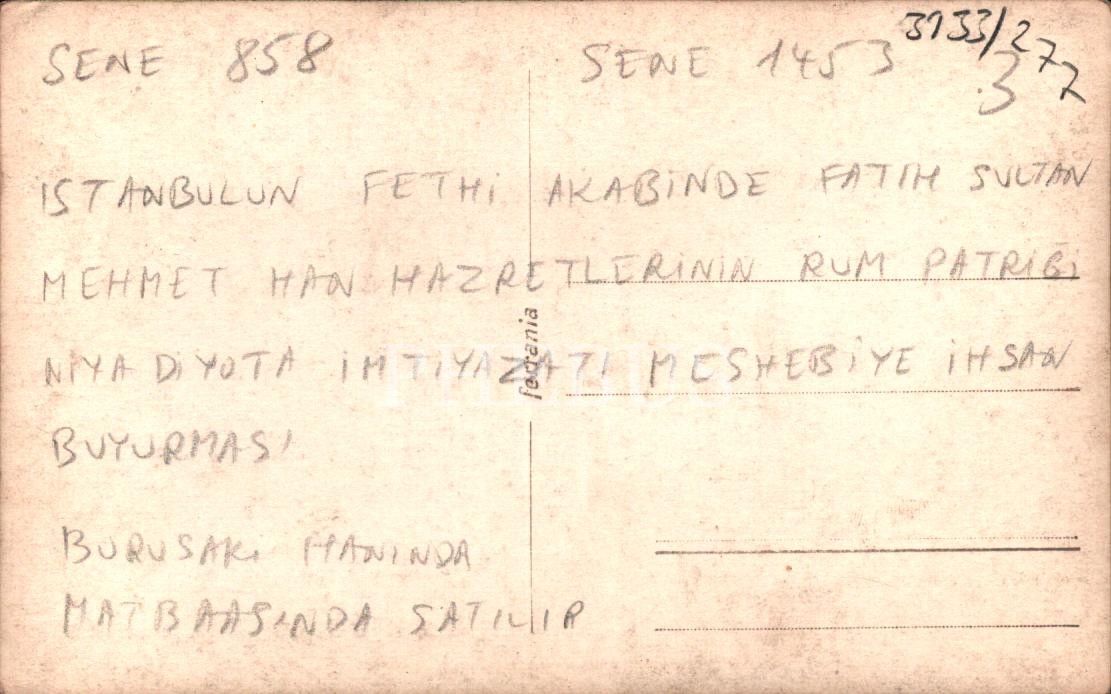 SENE 858 SENE 1453 3133/277
3
İSTANBULUN FETHİ AKABİNDE FATİH SULTAN
MEHMET HAN HAZRETLERİNİN RUM PATRİĞİ
NİYADİYOTA İMTİYAZATI MESHEBİYE İHSAN
BUYURMASI
BURUSAKİ HANINDA
MATBAASINDA SATILIR
ferrania